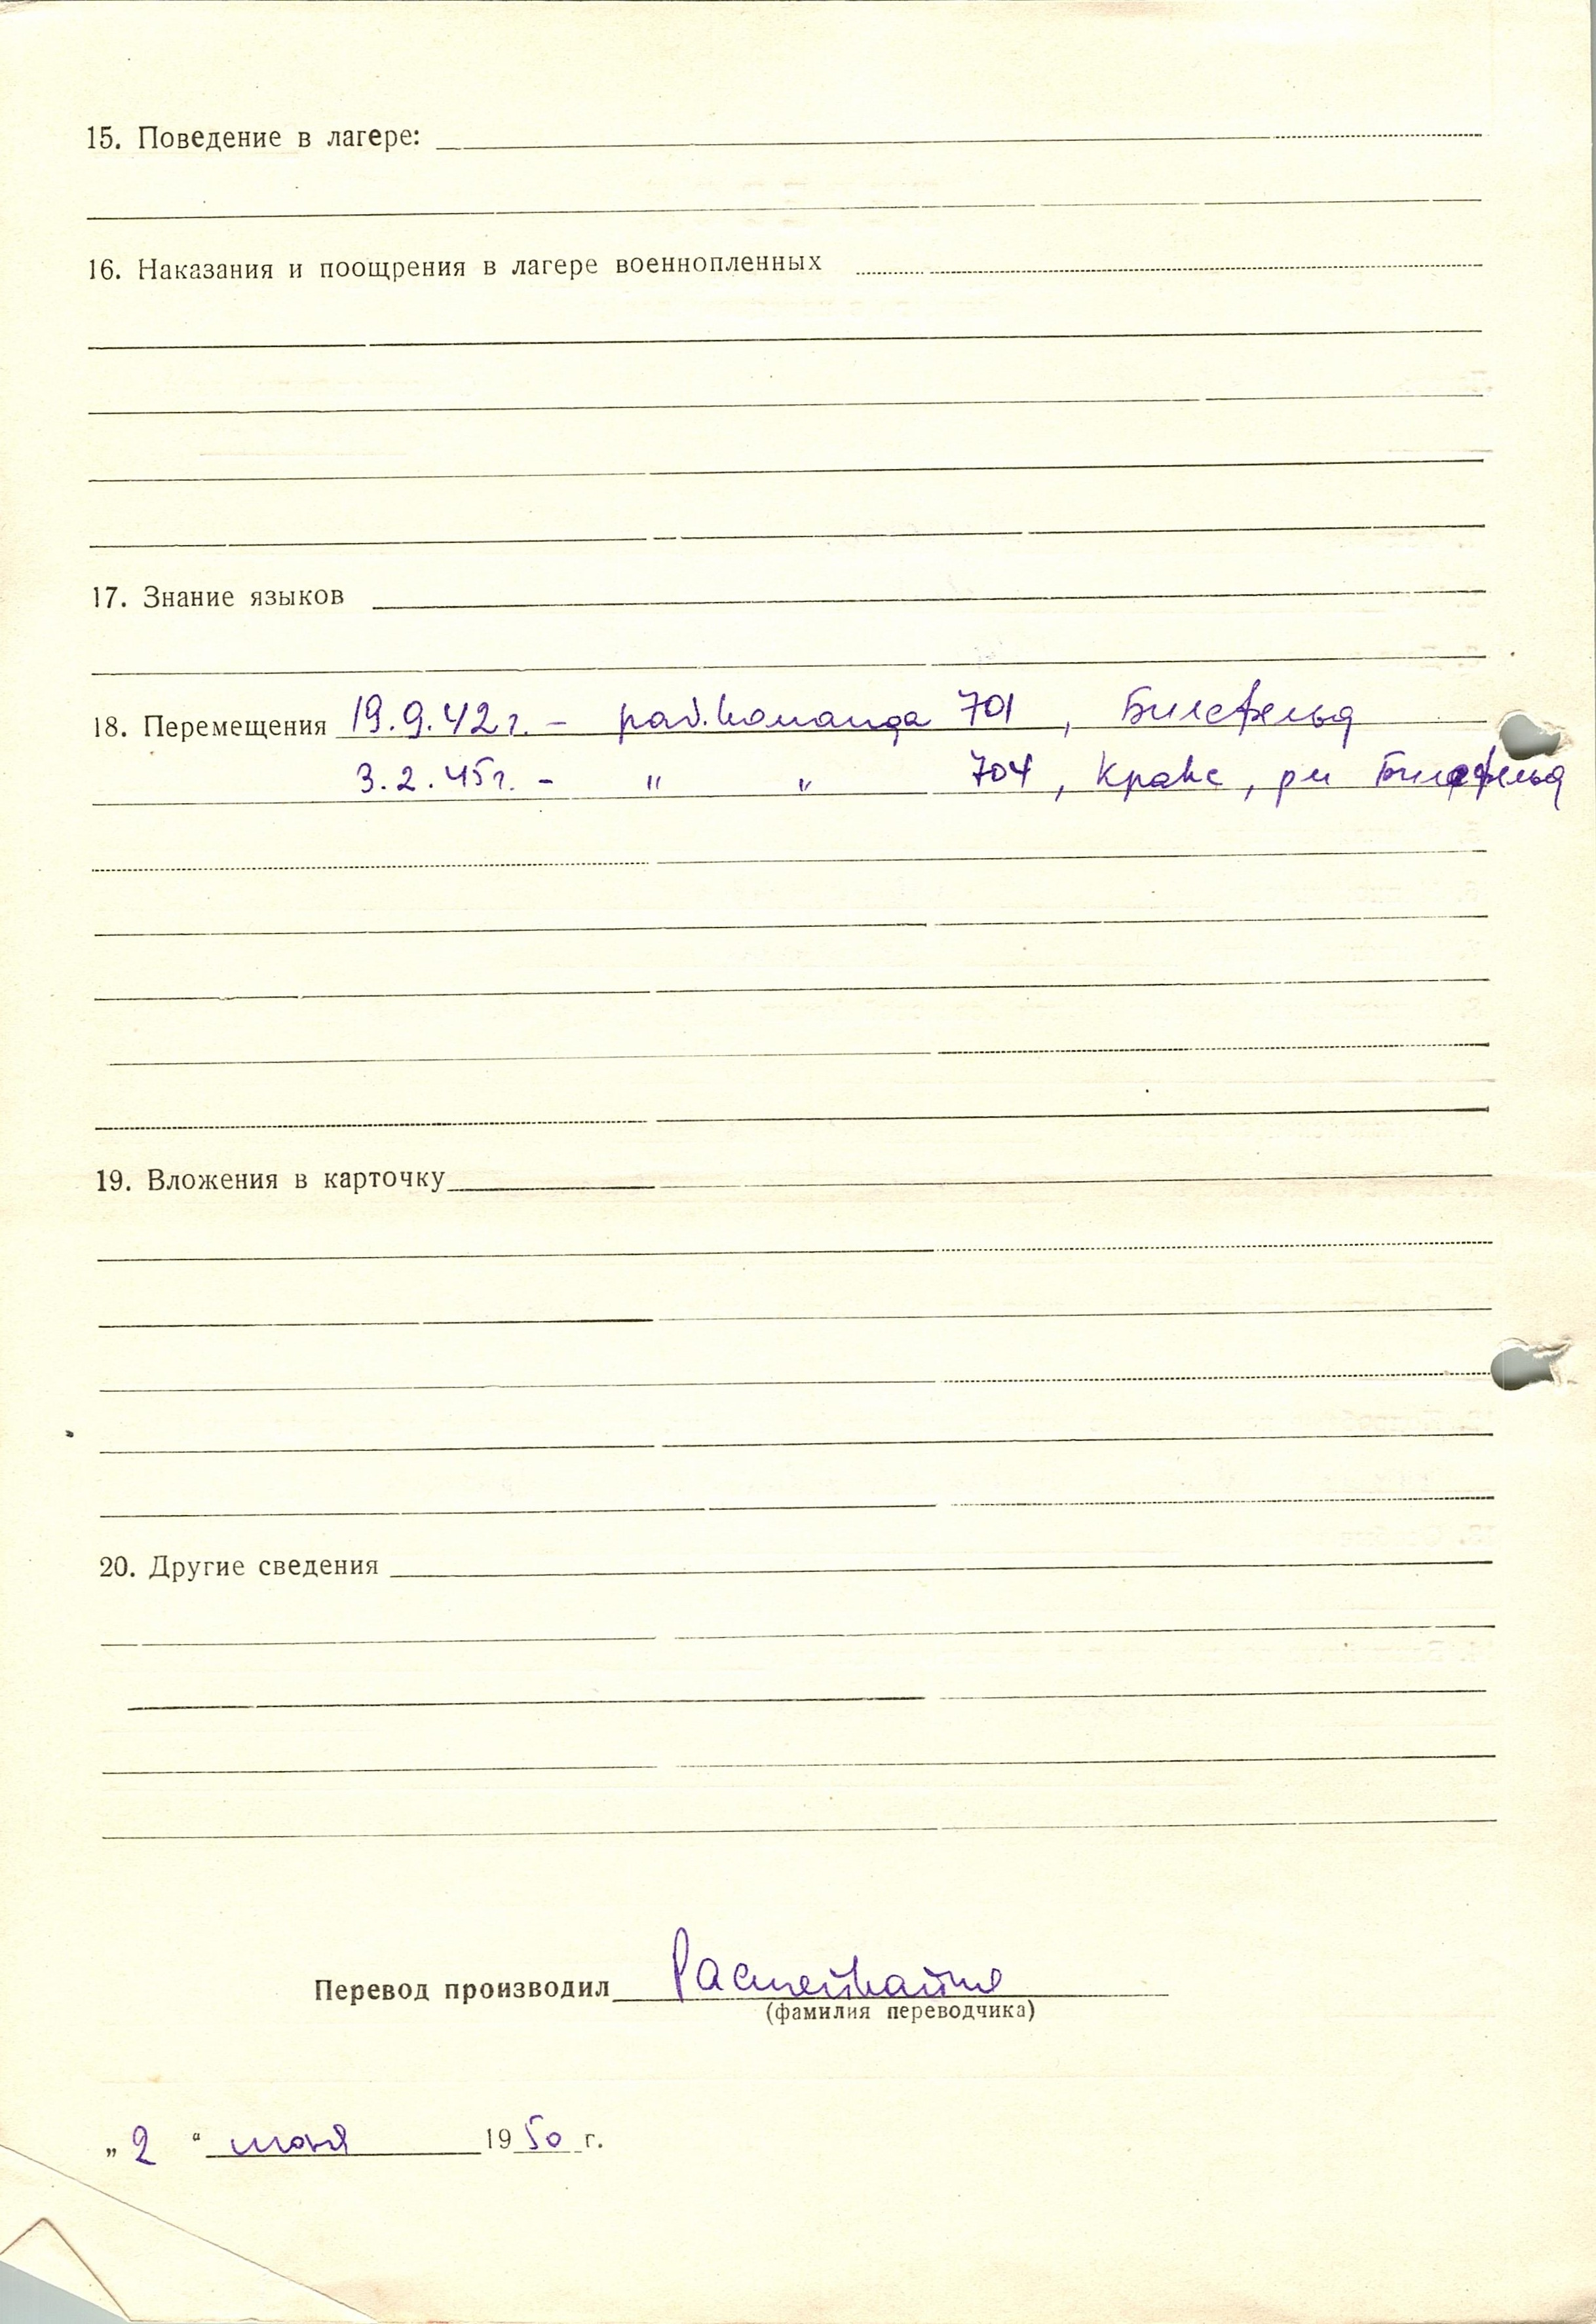 15. Поведение в лагере:
16. Наказания и поощрения в лагере военнопленных
17. Знание языков
18. Перемещения 19.9.42 г. – раб. команда 701, Билефельд
3.2.45 г. – " " 704, Кракс, рн Билефельд
19. Вложения в карточку
20. Другие сведения
Перевод производил
(фамилия переводчика)
„2“ июня 1950 г.